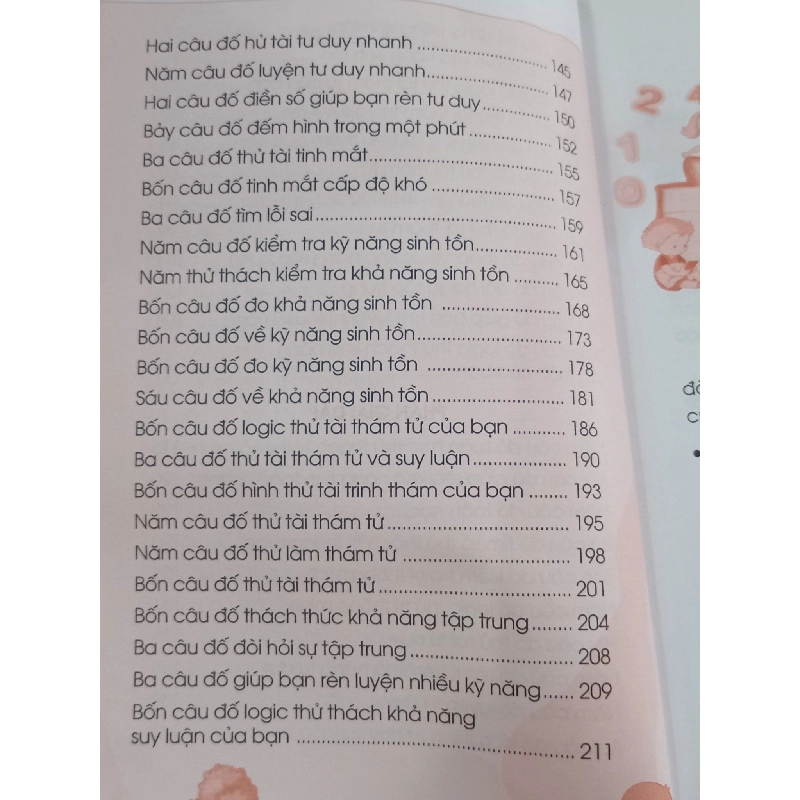 Hai câu đố hử tài tư duy nhanh ........................ 145
Năm câu đố luyện tư duy nhanh........................ 147
Hai câu đố điền số giúp bạn rèn tư duy.................. 150
Bảy câu đố đếm hình trong một phút ................ 152
Ba câu đố thử tài tinh mắt.................................. 155
Bốn câu đố tinh mắt cấp độ khó ........................ 157
Ba câu đố tìm lỗi sai............................................ 159
Năm câu đố kiểm tra kỹ năng sinh tồn.................. 161
Năm thử thách kiểm tra khả năng sinh tồn .......... 165
Bốn câu đố đo khả năng sinh tồn ...................... 168
Bốn câu đố về kỹ năng sinh tồn........................... 173
Bốn câu đố đo kỹ năng sinh tồn ......................... 178
Sáu câu đố về khả năng sinh tồn ......................... 181
Bốn câu đố logic thử tài thám tử của bạn .............. 186
Ba câu đố thử tài thám tử và suy luận .................. 190
Bốn câu đố hình thử tài trinh thám của bạn ........ 193
Năm câu đố thử tài thám tử ................................ 195
Năm câu đố thử làm thám tử .............................. 198
Bốn câu đố thử tài thám tử .................................. 201
Bốn câu đố thách thức khả năng tập trung........ 204
Ba câu đố đòi hỏi sự tập trung............................ 208
Ba câu đố giúp bạn rèn luyện nhiều kỹ năng...... 209
Bốn câu đố logic thử thách khả năng
suy luận của bạn .................................................. 211